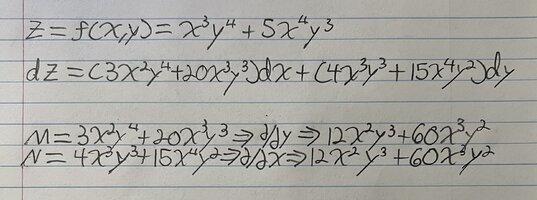 z = f(x,y) = x³y⁴ + 5x⁴y³
dz = (3x²y⁴+20x³y³)dx + (4x³y³ + 15x⁴y²)dy
M = 3x²y⁴ + 20x³y³ ⇒ ∂/∂y ⇒ 12x²y³ + 60x³y²
N = 4x³y³ + 15x⁴y² ⇒ ∂/∂x ⇒ 12x²y³ + 60x³y²